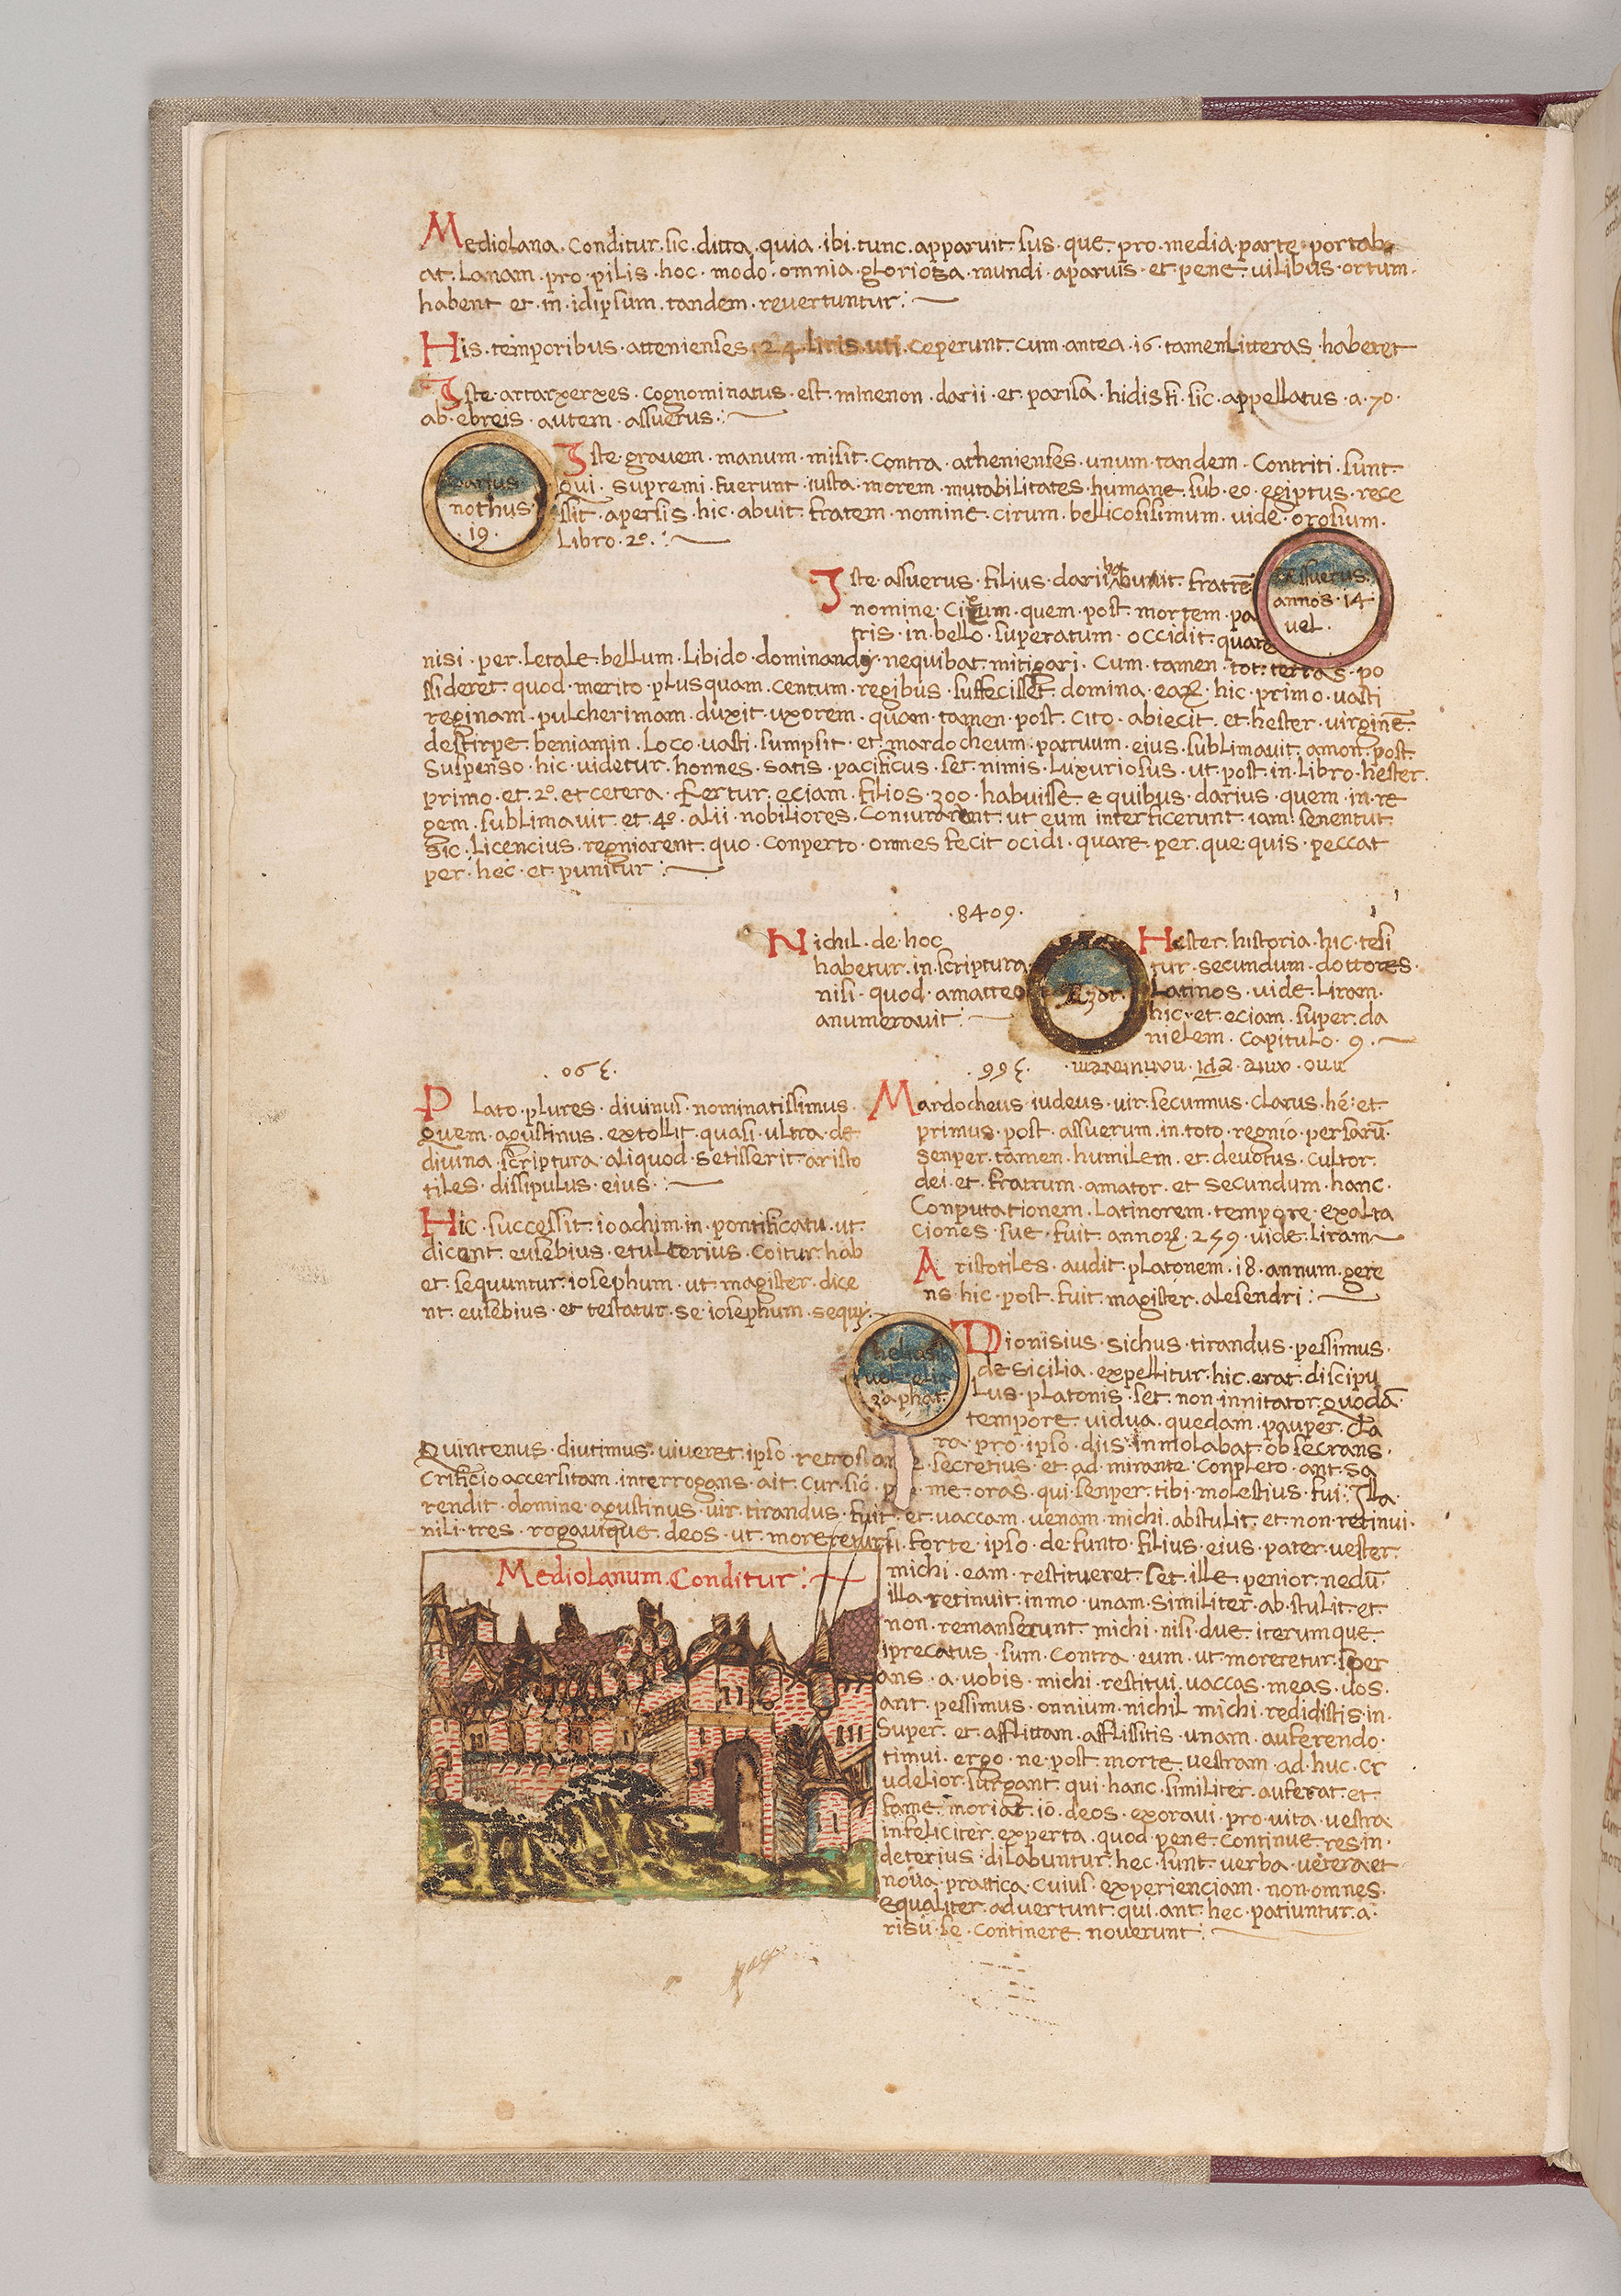 Mediolana. Conditur. sic. ditta. quia. ibi. tunc. apparuit. sus. que. pro. media. parte. portab
at. Lanam. pro. pilis. hoc. modo. omnia. gloriosa. mundi. aparuis. et. pene. uilibus. ortum.
habent et. in. idipsum. tandem. revertuntur:
His. temporibus. attenienses. 24. litis. uti. ceperunt. cum. antea. 16. tamen Litteras. haberet
Iste. artarxerxes. cognominatus. est. mnenon. darii. et. parisa. hidisti. sic. appellatus. a. 70.
ab. ebreis. autem. assuerus:
Iste. grauem. manum. misit. contra. athenienses. unum. tandem. Contriti. sunt.
qui. supremi. fuerunt. iusta. morem. mutabilitates. humane. sub. eo. egiptus. rece
ssit. apersis. hic. abuit. fratem. nomine. cirum. bellicosisimum. uide. orosium.
Libro. 2o.:
darius
nothus.
.19.
Iste. assuerus. filius. darii. fratrē
nomine. Cirum. quem. post. mortem. pa
tris. in. bello. superatum. occidit. quare
Assuerus.
annos. 14
uel.
nisi. per. Letale. bellum. Libido. dominandi. nequibat. mitigari. Cum. tamen. tot. terras. po
ssideret. quod. merito. plusquam. centum. regibus. suffecisset. domina. eaꝝ. hic. primo. uasti
reginam. pulcherimam. duxit. uxorem. quam. tamen. post. cito. abiecit. et. hester. virginē.
destirpe. beniamin. Loco. uasti. sumpsit. et. mardocheum. patruum. eius. sublimauit. amon. post.
Suspenso. hic. uidetur. homnes. satis. pacificus. set. nimis. Luxuriosus. ut. post. in. Libro. hester.
primo. et. 2o. et cetera. fertur. eciam. filios. 300. habuisse. e quibus. darius. quem. in. re
gem. sublimauit. et. 4o. alii. nobiliores. Coniurarent. ut eum interficerunt. iam. senentut
sic. Licencius. regniarent. quo. conperto. omnes fecit ocidi. quare. per. que. quis. peccat
per. hec. et. punitur:
.8409.
Nichil. de. hoc
habetur. in. scriptura
nisi. quod. amatteo
anumerauit:
Azor.
Hester. historia. hic. tesi
tur. secundum. dottores.
Latinos. uide. Liram.
hic. et. eciam. super. da
nielem. Capitulo. 9.
Plato. plures. diuinus. nominatissimus.
quem. agustinus. extollit. quasi. ultra. de
diuina. scriptura. aliquod. setisserit. aristo
tiles. dissipulus. eius.:
Hic. successit. ioachim. in. pontificatu. ut.
dicent. eusebius. etulterius. Coitur. hab
et. sequuntur. iosephum. ut. magister. dice
nt. eusebius. et testatur. se. iosephum. sequi.
Mardocheus. iudeus. uir. secunnus. clarus. hē. et.
primus. post. assuerum. in. toto. regnio. persarū.
senper. tamen. humilem. et. deuotus. cultor.
dei. et. fratrum. amator. et secundum. hanc.
Conputationem. Latinorem. tempore. exalta
ciones. sue. fuit. annoꝝ. 259. uide. liram
Aristotiles. audit. platonem. 18. annum. gere
ns. hic. post. fuit. magister. alesendri:
heliasi
uel. elia
zaphat.
Dionisius. sichus. tirandus. pessimus.
de Sicilia. expellitur. hic. erat. discipu
Lus. platonis. set. non. innitator. quodā.
tempore. uidua. quedam. pauper. Cla
ra. pro. ipso. diis. inmolabat. obsecrans.
Quintenus. diutimus. uiueret. ipso. secretius. et. ad. mirante. Conpleto. ant. sa
crificio accersitam. interrogans. ait. Cur. sic. me. oras. qui. senper. tibi. molestius. fui. Illa.
rendit. domine. agustinus. uir. tirandus. fuit. et. uaccam. uenam. michi. abstulit. et. non. retinui.
nili. tres. rogauique. deos. ut. moreretur. forte. ipso. defunto. filius. eius. pater. uester.
michi. eam. restitueret. set. ille. penior. nedū.
illa. retinuit. inmo. unam. similiter. abstulit. et.
non. remanserunt. michi. nisi. due. iterumque.
iprecatus. sum. contra. eum. ut. moreretur. sper
ans. a. uobis. michi. restitui. uaccas. meas. uos.
ant. pessimus. onnium. nichil michi. redidistis. in.
Super. et. afflittam. afflissitis. unam. auferendo.
timui. ergo. ne. post. morte. uestram. ad. huc. cr
udelior. surgant. qui. hanc. similiter. auferat. et
fame. moriat. iō. deos. exoraui. pro. uita. uestra
infeliciter. experta. quod. pene. continue. res. in.
deterius. dilabuntur. hec. sunt. uerba. uetera. et
noua. prattica. cuius. experienciam. non. omnes.
equaliter. aduertunt. qui. ant. hec. patiuntur. a.
risū. se. continere nouerunt:
Mediolanum. Conditur: